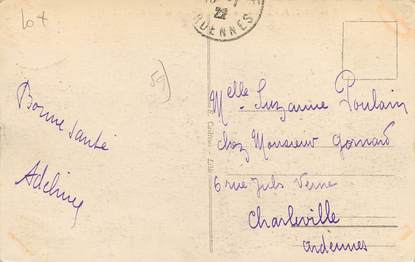 lot
22
ARDENNES
59
Bonne santé
Adeline
Melle Suzanne Poulain
chez Monsieur Gomard
6 rue Jules Verne
Charleville
ardennes